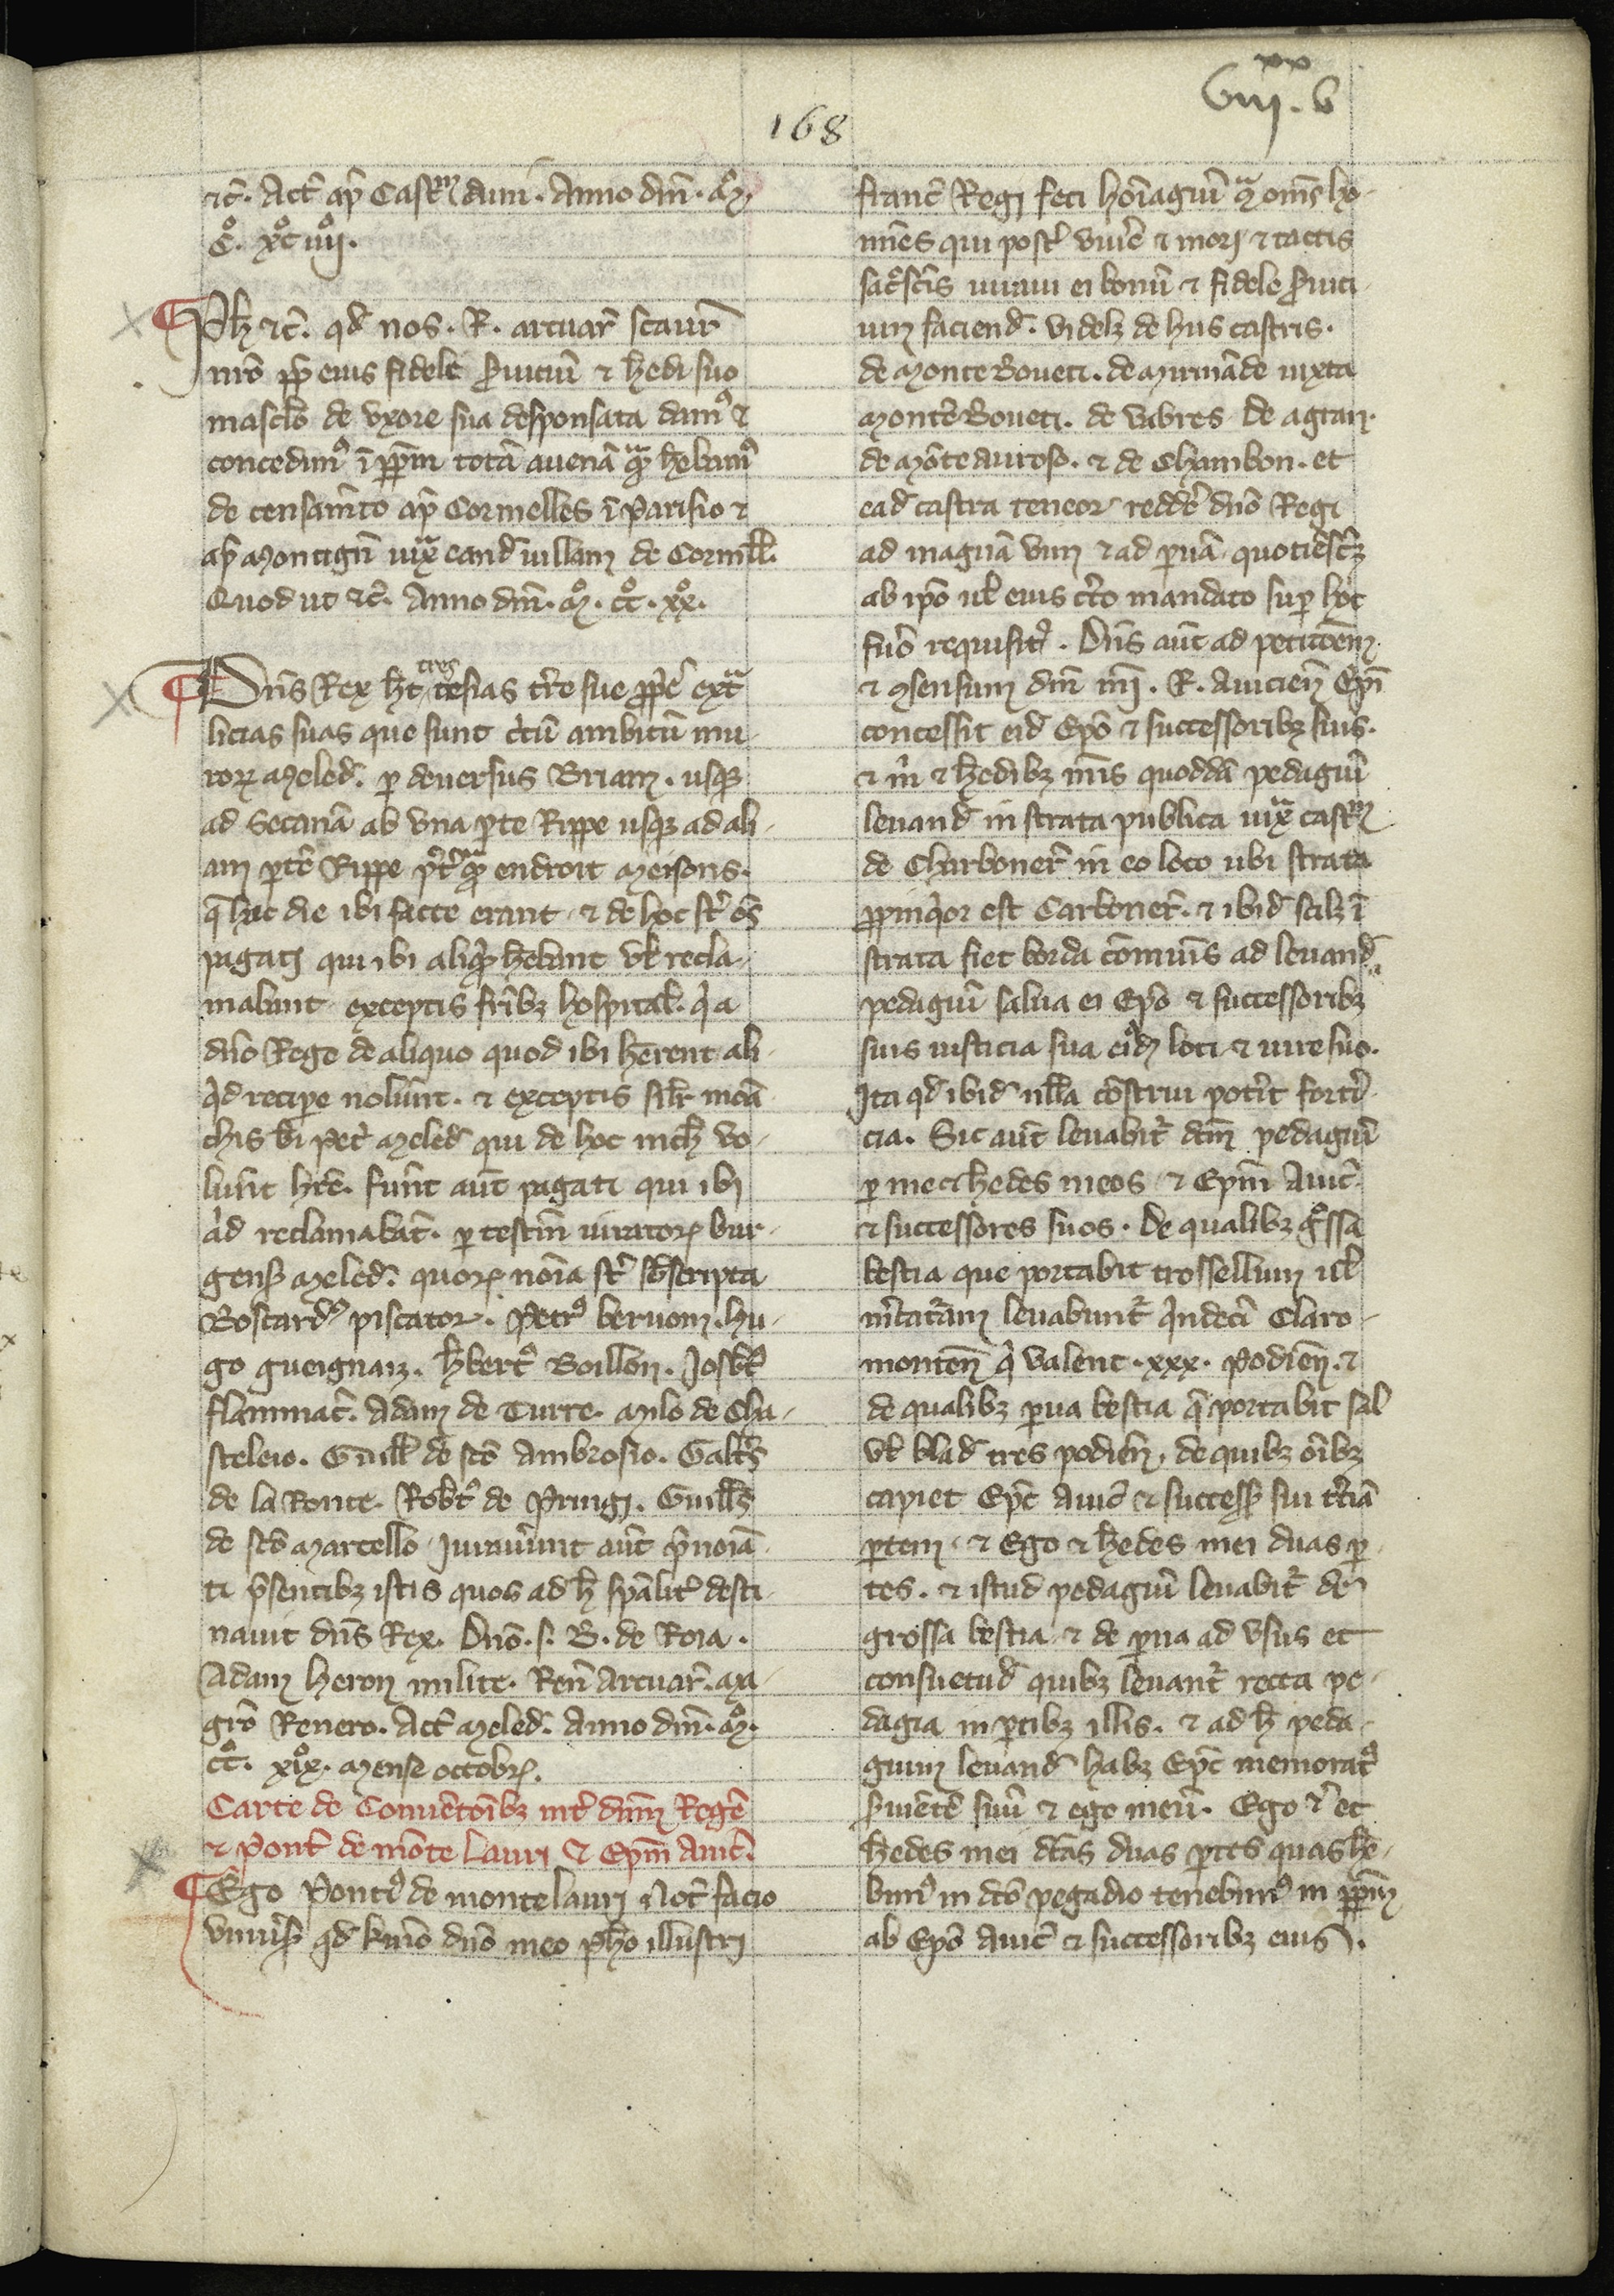 xx
viij . v
168
⁊c̄. Act̄ ap̄ Castrᵐ dunī. Anno dn̄i. mͦ.
cͦ. xͦc iiijͦ.
Ph̄ ⁊c̄. qd̄ nos. R. arcuar̄ scanr̄
nr̄o ꝓpt̄ eius fidele ẜuiciū ⁊ h̄edi suo
masclo de vxore sua desponsata damꝰ ⁊
concedimꝰ ī ꝑpm̄ totā auenā quā h̄ebamꝰ
de censam̄to ap̄ Cormelles ī Parisio ⁊
ap̄ Montigni iuxᵃ eand̄ uillam de Cormll̄.
Quod ut ⁊c̄. Anno dn̄i. mͦ. ccͦ. xxͦ.
Dn̄s Rex h̄t tres tesias tr̄e sue ꝓpe extᵃ
licias suas que sunt c̄tū ambitū mu
roꝝ Meled̄. ꝑ deuersus Briam. usqꝫ
ad Secanā ab vna ꝑte Rippe usqꝫ ad ali
am ꝑtē Rippe p̄t̄qᵃ endroit meisons.
q̄ hac die ibi facte erant ⁊ de hoc st̄ oēs
pagati qui ibi aliqⁱd h̄ebant vl̄ recla
mabant exceptis fr̄ibꝫ hospital̄. qⁱ a
dn̄o Rege de aliquo quod ibi h̄erent ali
qⁱd recipe nolūnt. ⁊ exceptis silr̄ mōa
chis bī Pet̄ Meled̄ qui de hoc nich̄ uo
lūnt h̄re. fūnt aut̄ pagati qui ibi
qⁱd reclamabāt. ꝑ testim̄ iuratoꝝ bur
gensiū Meled̄. quoꝝ noīa st̄ sb̄scripta
Bostardꝰ piscator. Petrꝰ beruom. hu
go gueignaꝛ. h̄bertꝰ Boillon. Josb̄tꝰ
flammac̄. Adam de Turre. Milo de Cha
steleio. Guill̄ de sc̄o Ambrosio. Galt̄s
de la Ronce. Robt̄ꝰ de Pringi. Guill̄s
de sc̄o Marcello. Jurauerunt aut̄ p̄noīa
ti p̄sentibꝫ istis quos ad h̄ sp̄alit̄ desti
nauit dn̄s Rex. Dn̄o. s. B. de Roia.
Adam heron milite. Ren̄ Arcuar̄. Ma
gr̄o Renero. Act̄ Meled̄. Anno dn̄i. mͦ.
ccͦ. xͦix. Mense octobꝝ.
Carte de Conuētōibꝫ int̄ dnm̄ Regē
⁊ Pont̄ de mōte Lauri ⁊ Epm̄ Anic̄.
Ego Poncꝰ de monte lauri Not̄ facio
vniuersꝭ qd̄ kmō dn̄o meo Ph̄o illustri
franc̄ Regi feci hōmagiū 9tᵃ oms̄ ho
mines qui post̄ viuē ⁊ mori ⁊ tactis
sac̄sc̄is iuraui ei bonū ⁊ fidele ẜuici
um faciend̄. videlꝫ de hiis castris.
de Monte Boueti. de Mirmāde iuxta
Monte Boueti. de Vabres de Agran.
de Mōte auroso. ⁊ de Chambon. et
ead̄ castra teneor redde dn̄o Regi
ad magnā vim ⁊ ad paruā quotiēscꝫ
ab ipō ul̄ eius c̄to mandato sup hoc
fuō requisitꝰ. Dn̄s aut̄ ad petitōem
⁊ 9sensum dn̄i mī. R. Aniciens̄ Epī
concessit eid̄ Epō ⁊ successoribꝫ suis.
⁊ m̄ ⁊ h̄edibꝫ meīs quoddā pedagiū
leuand̄ in strata publica iuxᵃ castrᵐ
de Charboner̄ in eo loco ubi strata
ꝓpinqⁱor est Carboner̄. ⁊ ibid̄ scilꝫ ī
strata fiet borda cōmunis ad leuand̄
pedagiū salua ei Epō ⁊ successoribꝫ
suis iusticia sua eiꝰdem loci ⁊ iure suo.
Ita qd̄ ibid̄ ull̄a cōstrui pot̄it fort̄i
cia. Sic aut̄ leuabit̄ dcm̄ pedagiū
ꝑ me ⁊ h̄edes meos ⁊ Epm̄ Anic̄.
⁊ successores suos. De qualibꝫ gͦssa
bestia que portabit trossellum ul̄
m̄catᵃram leuabunt̄ qⁱndeci Claro
montens̄ qⁱ valent. xxx. Podiēn. ⁊
de qualibꝫ ꝑua bestia q̄ portabit sal
vl̄ blad̄ tres podien̄. de quibꝫ oībꝫ
capiet Epc̄ Anic̄ ⁊ successꝭ sui t̄ciā
ꝑtem ⁊ Ego ⁊ h̄edes mei duas ꝑ
tes. ⁊ istud pedagiū leuabit̄ de
grossa bestia ⁊ de ꝑua ad vsus et
consuetud̄ quibꝫ leuant̄ recta pe
dagia in ꝑtibꝫ illis. ⁊ ad h̄ peda
gium leuand̄ habꝫ Epc̄ memoratꝰ
ẜuiētē suū ⁊ ego meū. Ego ū et
h̄edes mei dc̄as duas ꝑtes quas h̄e
bimꝰ in dc̄o pegadio tenebimꝰ in ꝑpm̄
ab Epō Anic̄ ⁊ successoribꝫ eius.